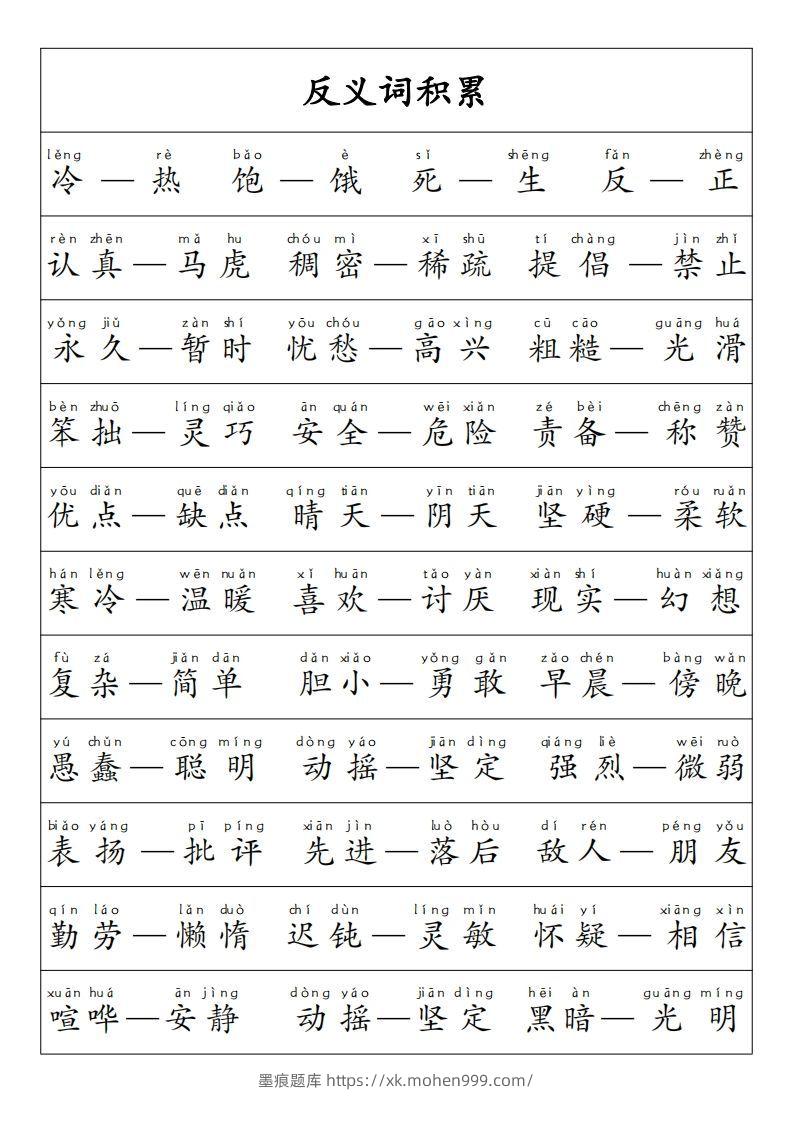 反义词积累
lěng rè bǎo è sǐ shēng fǎn zhèng
冷 — 热 饱 — 饿 死 — 生 反 — 正
rèn zhēn mǎ hu chóu mì xī shū tí chàng jìn zhǐ
认真 — 马虎 稠密 — 稀疏 提倡 — 禁止
yǒng jiǔ zàn shí yōu chóu gāo xìng cū cāo guāng huá
永久 — 暂时 忧愁 — 高兴 粗糙 — 光滑
bèn zhuō líng qiǎo ān quán wēi xiǎn zé bèi chēng zàn
笨拙 — 灵巧 安全 — 危险 责备 — 称赞
yōu diǎn quē diǎn qíng tiān yīn tiān jiān yìng róu ruǎn
优点 — 缺点 晴天 — 阴天 坚硬 — 柔软
hán lěng wēn nuǎn xǐ huān tǎo yàn xiàn shí huàn xiǎng
寒冷 — 温暖 喜欢 — 讨厌 现实 — 幻想
fù zá jiǎn dān dǎn xiǎo yǒng gǎn zǎo chén bàng wǎn
复杂 — 简单 胆小 — 勇敢 早晨 — 傍晚
yú chǔn cōng míng dòng yáo jiān dìng qiáng liè wēi ruò
愚蠢 — 聪明 动摇 — 坚定 强烈 — 微弱
biǎo yáng pī píng xiān jìn luò hòu dí rén péng yǒu
表扬 — 批评 先进 — 落后 敌人 — 朋友
qín láo lǎn duò chí dùn líng mǐn huái yí xiāng xìn
勤劳 — 懒惰 迟钝 — 灵敏 怀疑 — 相信
xuān huá ān jìng dòng yáo jiān dìng hēi àn guāng míng
喧哗 — 安静 动摇 — 坚定 黑暗 — 光明
墨痕题库 https://xk.mohen999.com/